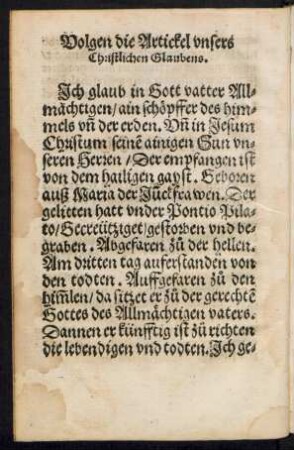 Volgen die Artickel vnsers
Christlichen Glaubens.
Ich glaub in Gott vatter All-
mächtigen/ain schöpffer des him-
mels vn̄ der erden. Vn̄ in Jesum
Christum seinē ainigen Sun vn-
seren Herren/Der empfangen ist
von dem hailigen gayst. Geboren
auß Maria der Jūckfrawen. Der
gelitten hatt vnder Pontio Pila-
to/Gecreütziget/gestorben vnd be-
graben. Abgefaren zů der hellen.
Am dritten tag auferstanden von
den todten. Auffgefaren zů den
him̄len/da sitzet er zů der gerechtē
Gottes des Allmächtigen vaters.
Dannen er künfftig ist zů richten
die lebendigen vnd todten. Ich ge-